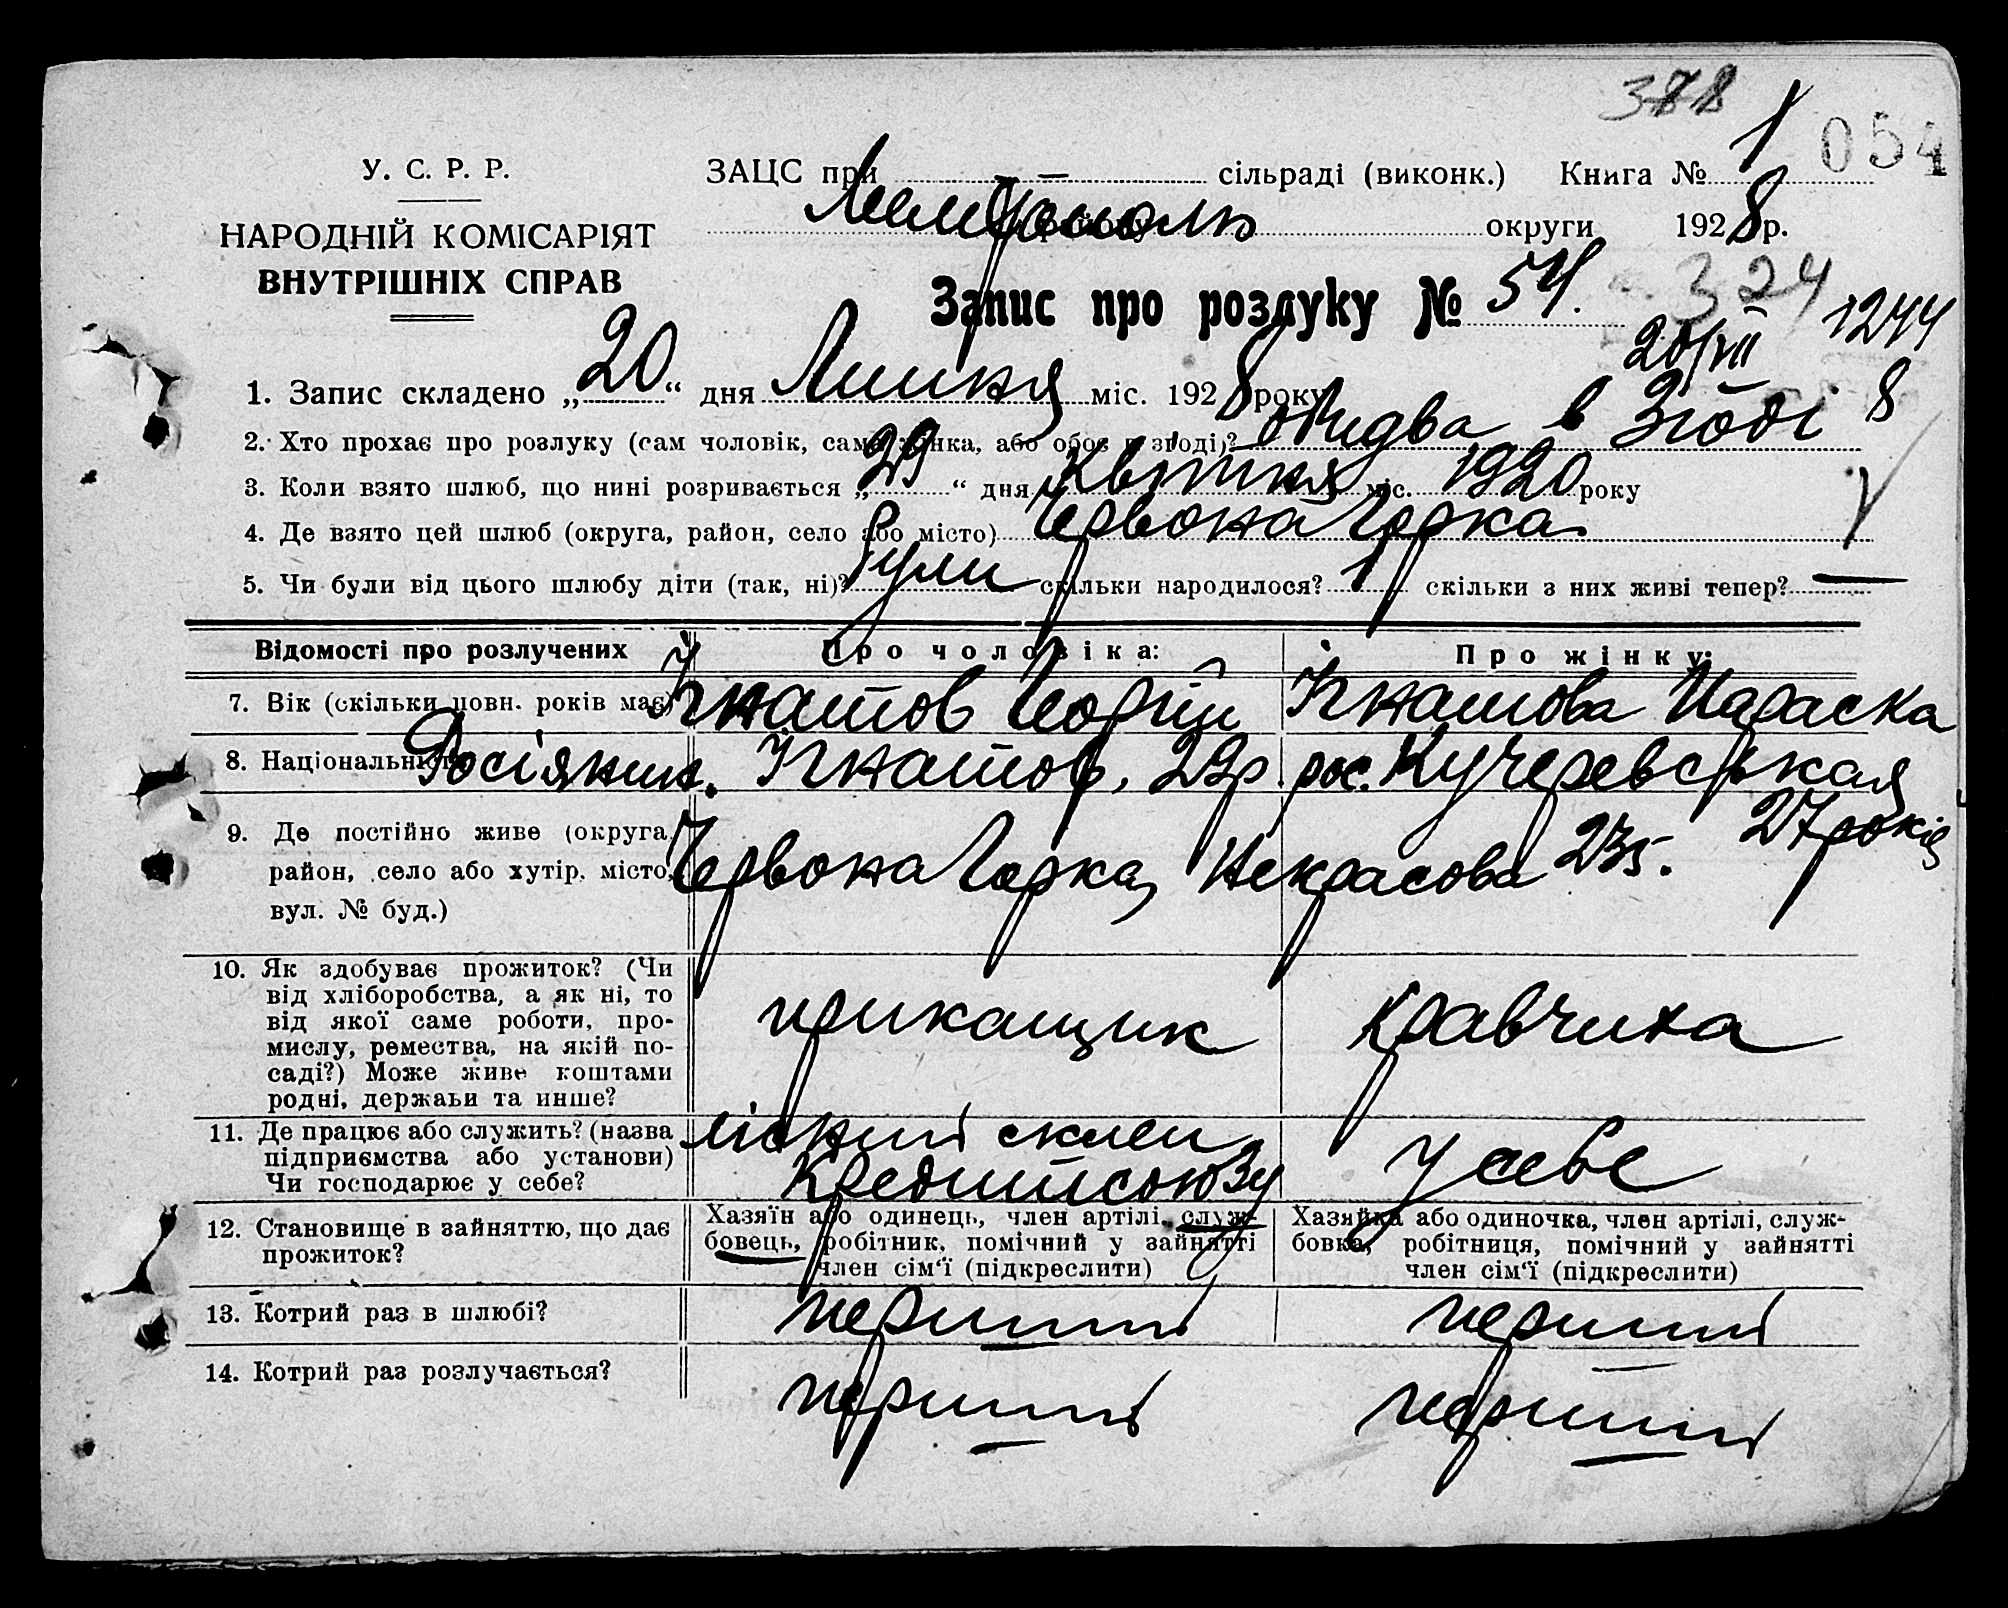 378
У. С. Р. Р.
НАРОДНІЙ КОМІСАРІЯТ
ВНУТРІШНІХ СПРАВ
ЗАЦС при — сільраді (виконк.) Книга № 1 054
Мелітополь округи 1928 р.
Запис про розлуку № 54.
324
1244
20/VII 8
1. Запис складено „20“ дня Липня міс. 1928 року
2. Хто прохає про розлуку (сам чоловік, сама жінка, або обоє в згоді)? обидва в Згоді
3. Коли взято шлюб, що нині розривається „29“ дня Квітня міс. 1920 року
4. Де взято цей шлюб (округа, район, село або місто) Червона Горка
5. Чи були від цього шлюбу діти (так, ні)? були скільки народилося? 1 скільки з них живі тепер? —
Відомості про розлучених Про чоловіка: Про жінку:
7. Вік (скільки повн. років має) Ігнатов Георгій Ігнатова Параска
8. Національність Росіянин. Ігнатов, 29р. рос. Кучеревская
27 років
9. Де постійно живе (округа,
район, село або хутір, місто,
вул. № буд.)
Червона Горка, Некрасова 235.
10. Як здобуває прожиток? (Чи
від хліборобства, а як ні, то
від якої саме роботи, про-
мислу, ремества, на якій по-
саді?) Може живе коштами
родні, держави та инше?
прикащик кравчиха
11. Де працює або служить? (назва
підприємства або установи)
Чи господарює у себе?
лісний склеп
Кредитсоюзу
у себе
12. Становище в зайняттю, що дає
прожиток?
Хазяїн або одинець, член артілі, служ-
бовець, робітник, помічний у зайнятті
член сім'ї (підкреслити)
Хазяйка або одиночка, член артілі, служ-
бовка, робітниця, помічний у зайнятті
член сім'ї (підкреслити)
13. Котрий раз в шлюбі? перший перший
14. Котрий раз розлучається? перший перший